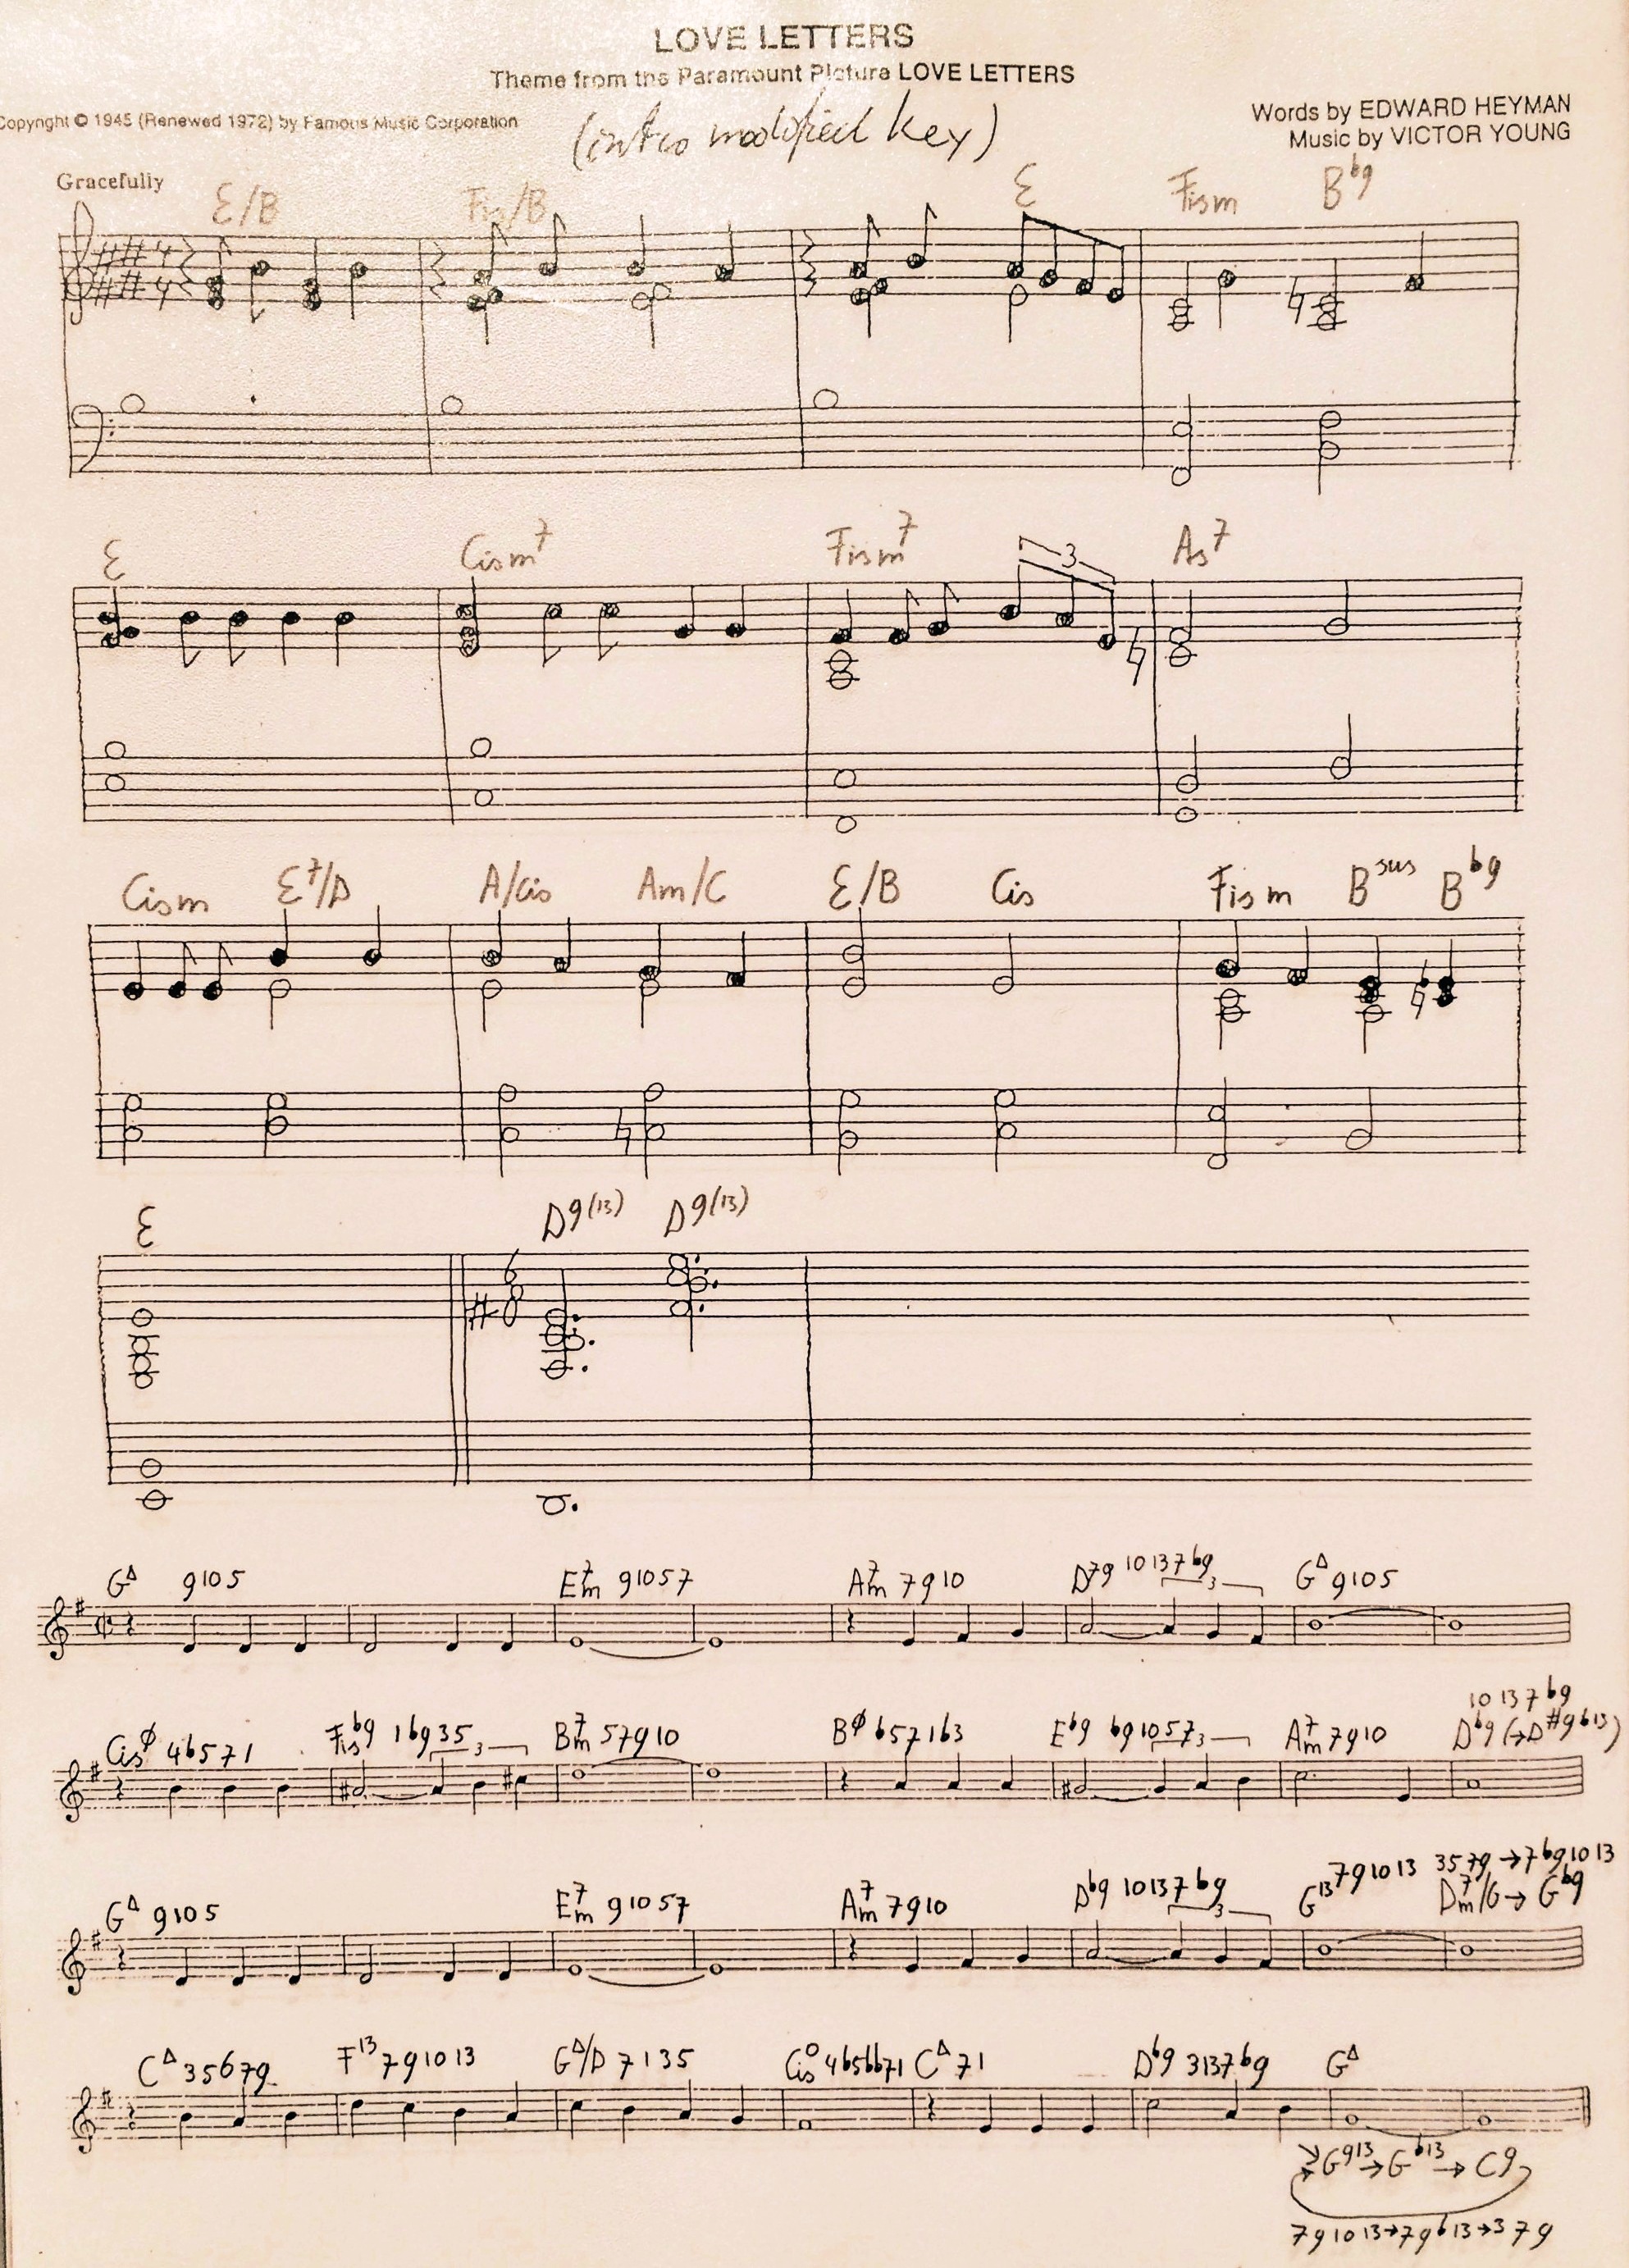 LOVE LETTERS
Theme from the Paramount Picture LOVE LETTERS
Copyright © 1945 (Renewed 1972) by Famous Music Corporation
(intro modified key)
Words by EDWARD HEYMAN
Music by VICTOR YOUNG
Gracefully
E/B Fis/B E Fism B♭9
4
4
E Cism7 Fism7 3 As7
Cism E7/D A/Cis Am/C E/B Cis Fism Bsus B♭9
E D9(13) D9(13)
6
8
GΔ 9105 Em7 91057 Am7 7910 D79 10137♭9 3 GΔ 9105
Cisø 4♭571 Fis♭9 1♭935 3 Bm7 57910 Bø ♭571♭3 E♭9 ♭91057 3 Am7 7910 10137♭9
D♭9 (→D#9♭13)
GΔ 9105 Em7 91057 Am7 7910 D♭9 10137♭9 3 G13 791013 3579→7♭91013
Dm7/G→G♭9
CΔ 35679 F13 791013 GΔ/D 7135 Cis° 4♭5♭♭71 CΔ 71 D♭9 3137♭9 GΔ
G913→G♭13→C9
791013→79♭13→379